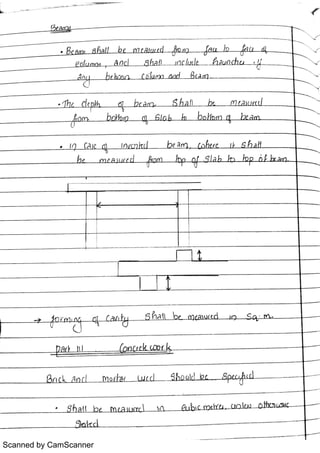 Beams
• Beam shall be measured from face to face of
columns, and shall include haunches if
any between column and Beam.
• The depth of beam shall be measured
from bottom of slab to bottom of beam
• In case of inverted beam, where it shall
be measured from top of slab to top of beam.
→ forming of cavity shall be measured in Sq. m.
Part III Concrete work
Brick And mortar used should be specified
• shall be measured in cubic metres, unless otherwise
stated
Scanned by CamScanner